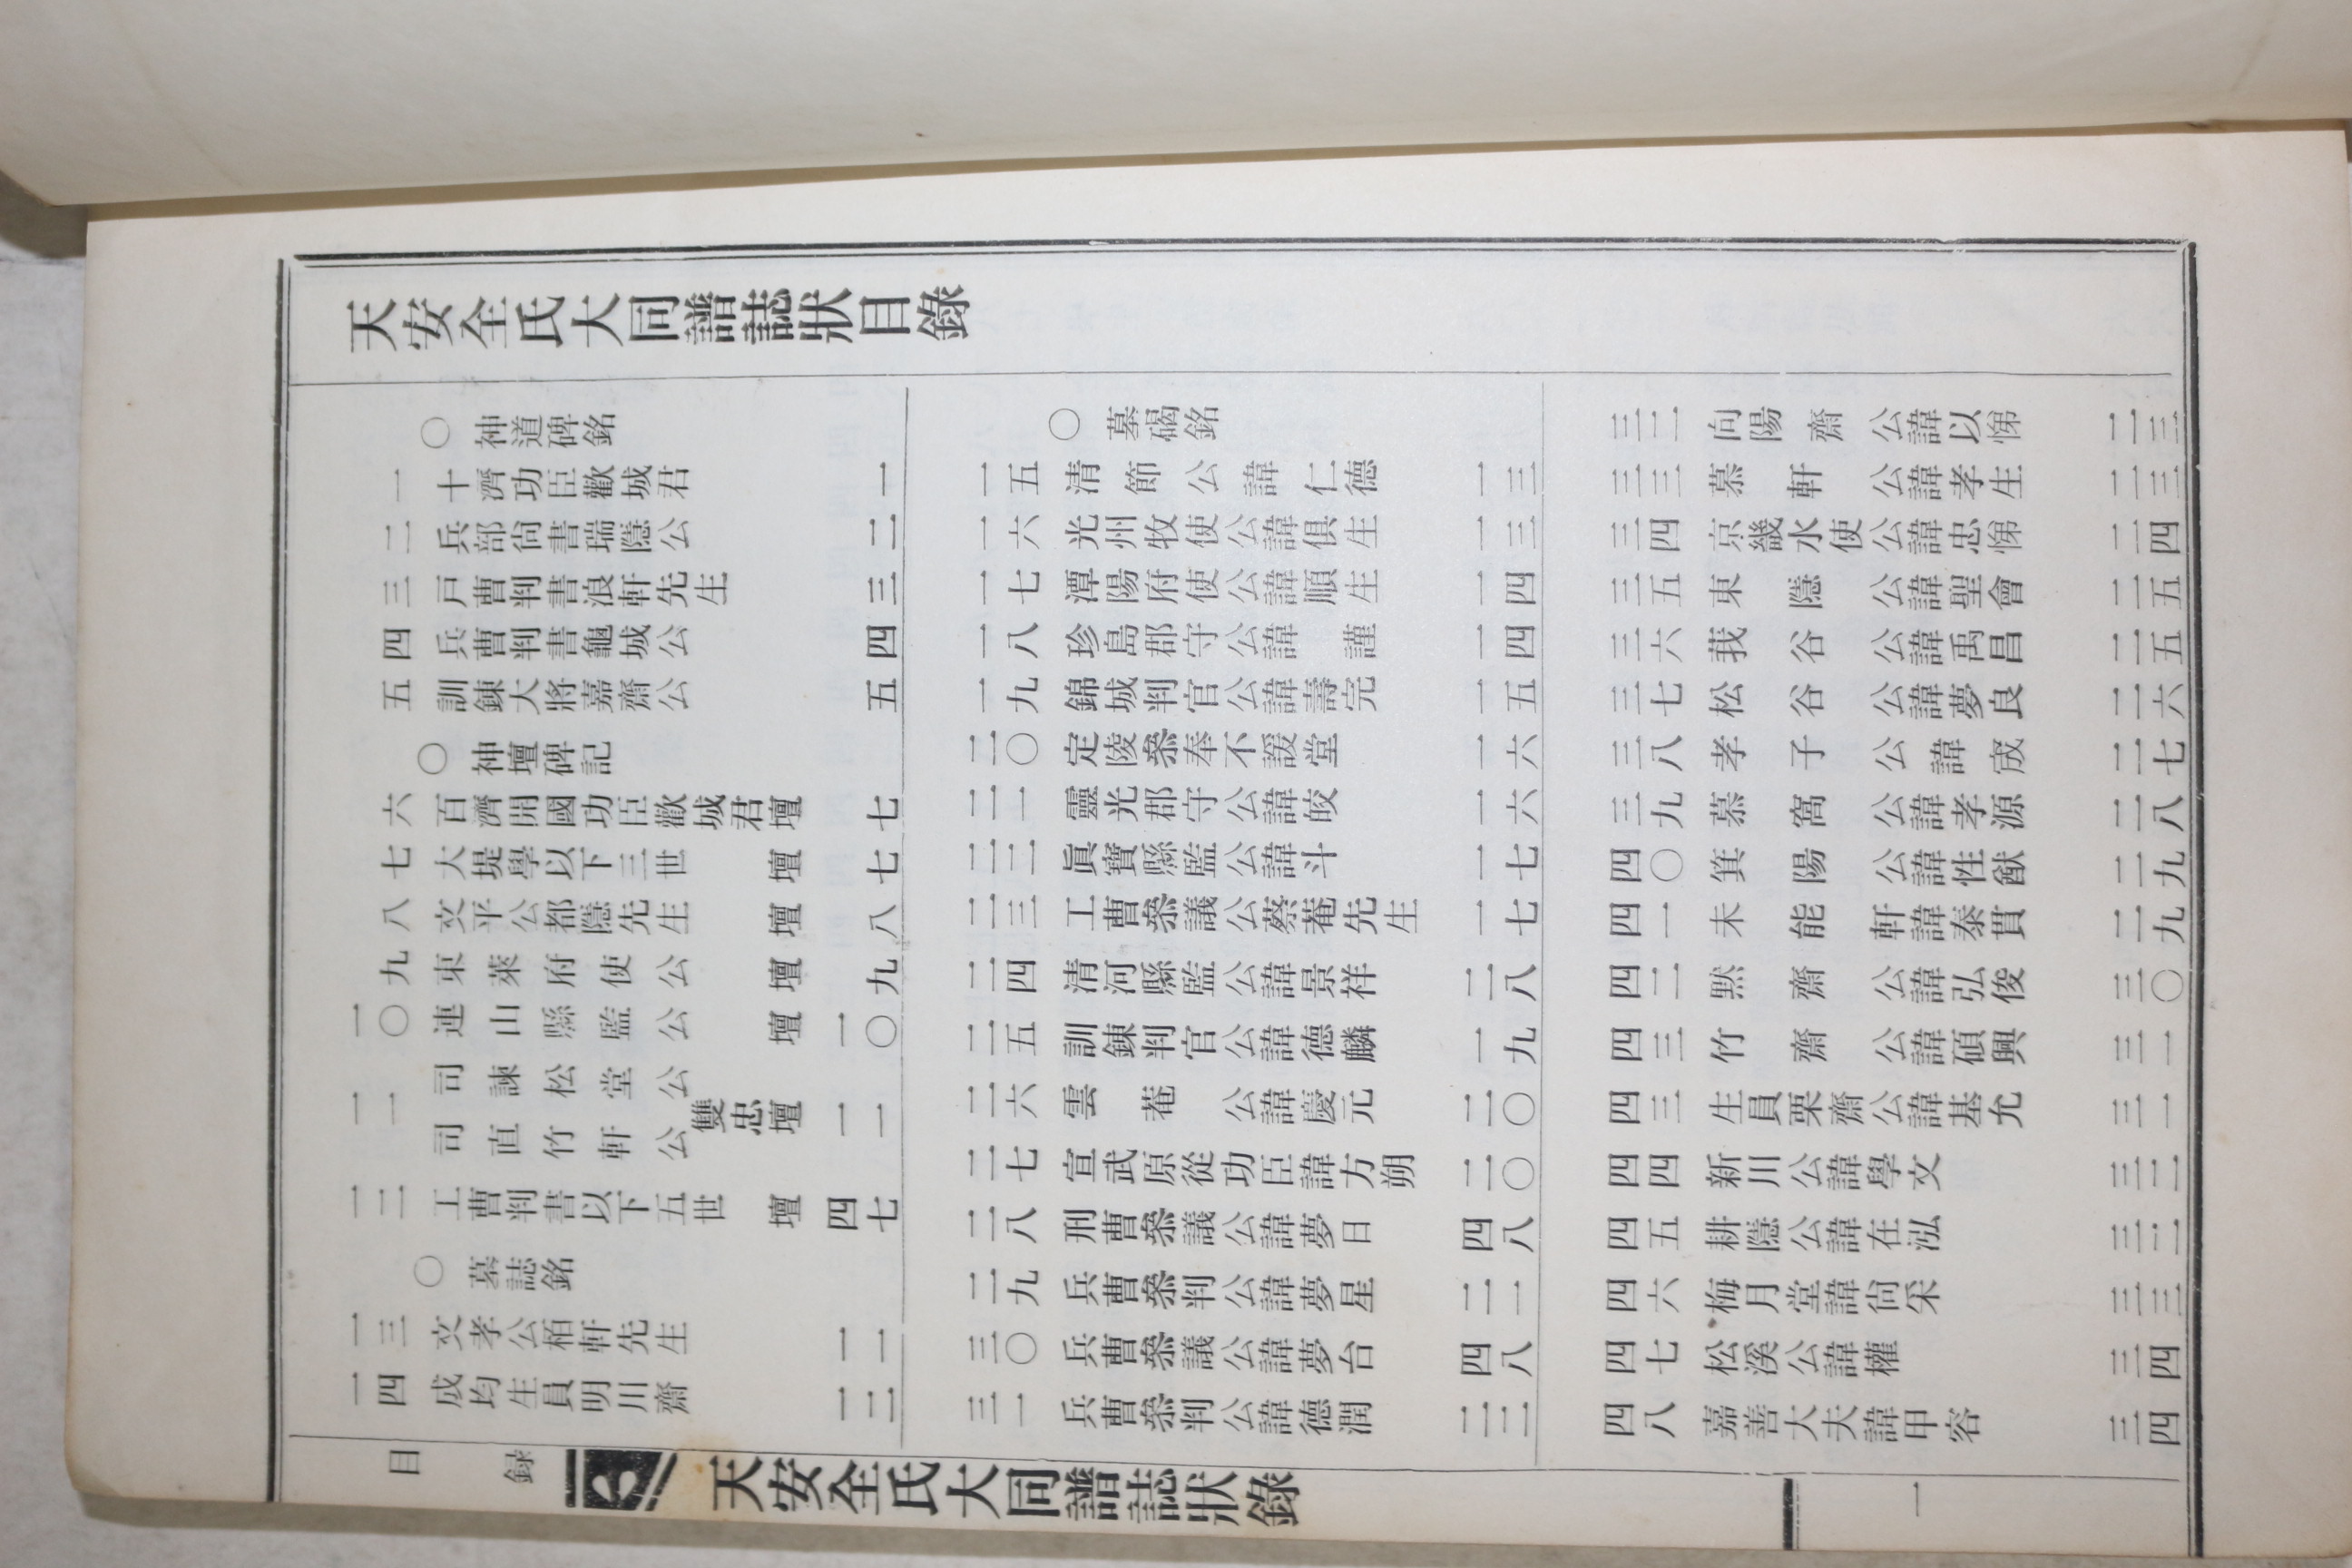 天安全氏大同譜誌狀目錄
○ 神道碑銘
一 十濟功臣歡城君 一
二 兵部尙書瑞隱公 二
三 戶曹判書浪軒先生 三
四 兵曹判書龜城公 四
五 訓鍊大將嘉齋公 五
○ 神壇碑記
六 百濟開國功臣歡城君壇 七
七 大堤學以下三世壇 七
八 文平公都隱先生壇 八
九 東萊府使公壇 九
一〇 連山縣監公壇 一〇
一一 司諫松堂公 司直竹軒公 雙忠壇 一一
一二 工曹判書以下五世壇 四七
○ 墓誌銘
一三 文孝公栢軒先生 一一
一四 成均生員明川齋 一二
○ 墓碣銘
一五 清節公諱仁德 一三
一六 光州牧使公諱俱生 一三
一七 潭陽府使公諱順生 一四
一八 珍島郡守公諱謹 一四
一九 錦城判官公諱壽完 一五
二〇 定陵參奉不諼堂 一六
二一 靈光郡守公諱皎 一六
二二 眞寶縣監公諱斗 一七
二三 工曹參議公蔡菴先生 一七
二四 清河縣監公諱景祥 二八
二五 訓鍊判官公諱德麟 一九
二六 雲菴公諱慶元 二〇
二七 宣武原從功臣諱方朔 二〇
二八 刑曹參議公諱夢日 四八
二九 兵曹參判公諱夢星 二一
三〇 兵曹參議公諱夢台 四八
三一 兵曹參判公諱德潤 二二
三二 向陽齋公諱以悌 二三
三三 慕軒公諱孝生 二三
三四 京畿水使公諱忠悌 二四
三五 東隱公諱聖會 二五
三六 莪谷公諱禹昌 二五
三七 松谷公諱夢良 二六
三八 孝子公諱宬 二七
三九 慕窩公諱孝源 二八
四〇 箕陽公諱性猷 二九
四一 未能軒諱泰貫 二九
四二 黙齋公諱弘俊 三〇
四三 竹齋公諱碩興 三一
四三 生員栗齋公諱基允 三一
四四 新川公諱學文 三二
四五 耕隱公諱在泓 三二
四六 梅月堂諱尙采 三三
四七 松溪公諱權 三四
四八 嘉善大夫諱甲容 三四
目錄
天安全氏大同譜誌狀錄
一